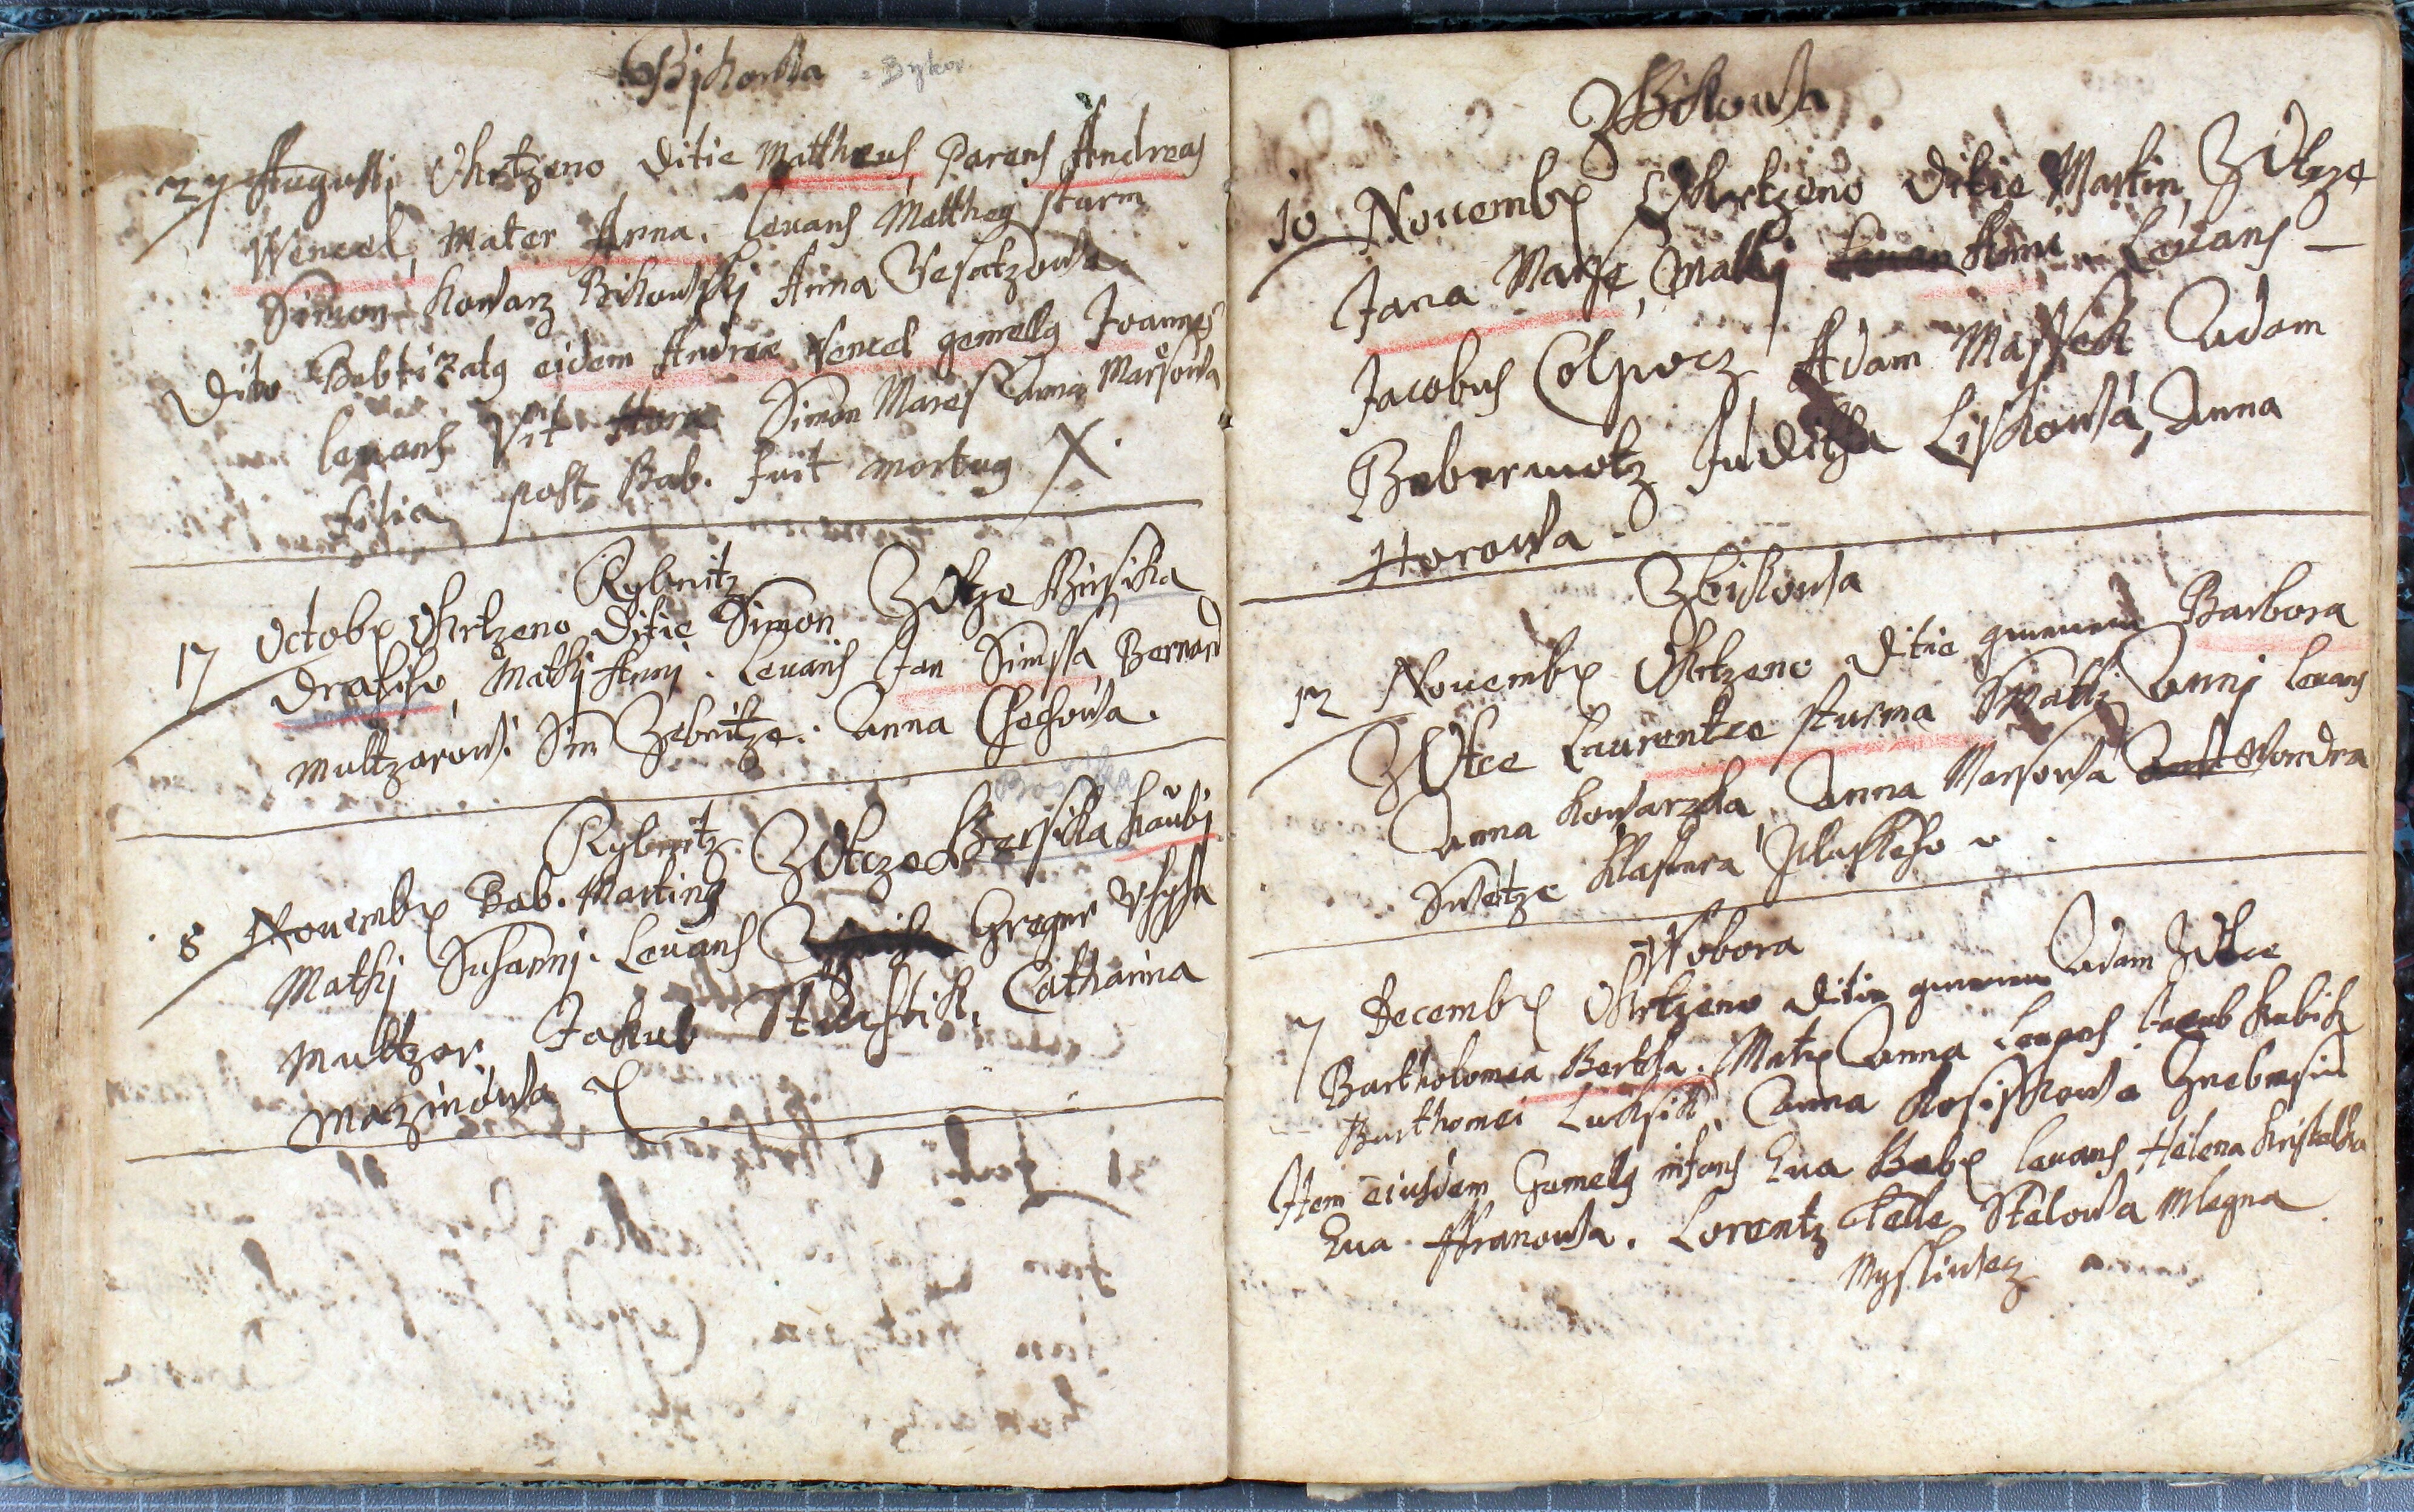 Bikowa = Bykov
27 Augusti Okrtzeno Ditie Mattheus Parens Andreas
Wencel, Mater Anna. Levans Mattheg sturm
Simon Kowarz Bikowskj Anna Vesatzowa
Dito Babtizatg eidem Andreæ Vencel gemellg Joannes
levans Vit Simon Mares anna Marsowa
filia post Bab. fuit mortug X.
Rybnitz
17 Octobr Okrtzeno Ditie Simon Zotze Birsika
Drasiho, Matkj Annj. Levans Jan Simssa, Bernard
Multzarowi Sin Zebnitze. Anna Chehowa.
Rybnitz
8 Novembr Bab. Marting Zotcze Bersika Kaubj
Matkj Susannj. Levans Gregor
Multzar Jakub Catharina
Mazinowa
Z Bikowa
10 Novembr Okrtzeno Ditie Martin, Z Otzze
Jana Marsse, Matkj Anni Levans
Jacobus Colpocz Adam Massek Adam
Beberwotz Juditha Liskowa, Anna
Horowa.
Z bikowa
12 Novembr Okrtzeno Ditie gmenem Barbora
Z Otce Laurentce sturma Matkj Annj levans
Anna Kowarzka, Anna Marsowa Vondra
Swetze Klastera Plaskeho
Wobora
7 Decembr Okrtzeno Ditie gmenem Adam Z Otce
Bartholomea Bertha. Matr Anna Levans Jacub Kubik
Barthomei Luksik, Anna Kosisskowa Znebnsin
Item eiusdem Gemellg infans Eva Babr levans Helena Kristelka
Eva ffranowa. Lorentz Telle Stelowa Mlegna
Mysliwecz